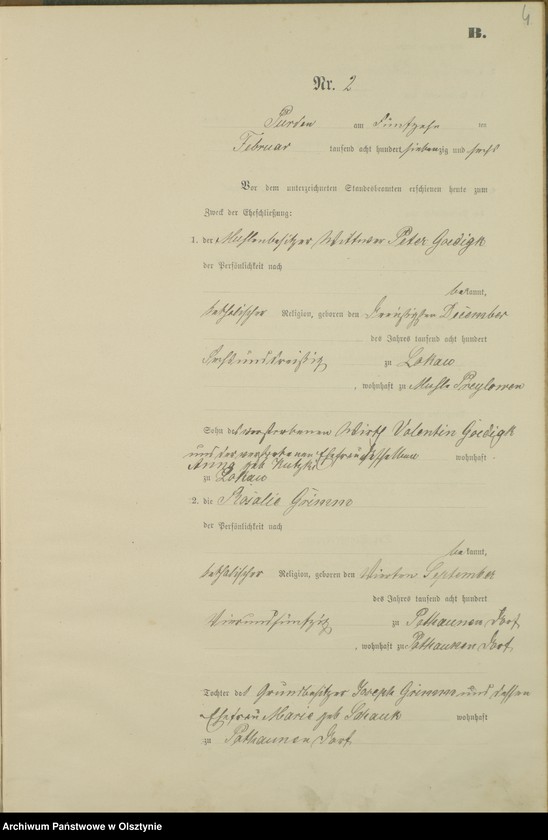 4
B.
Nr. 2
Purden am Fünfzehn ten
Februar tausend acht hundert siebenzig und sechs
Vor dem unterzeichneten Standesbeamten erschienen heute zum
Zweck der Eheschließung:
1. der Muhlenbesitzer Wittwer Peter Goedigk
der Persönlichkeit nach
bekannt,
katholischer Religion, geboren den Dreißigsten December
des Jahres tausend acht hundert
Sechsunddreißig zu Lokau
, wohnhaft zu Muhle Preylowen
Sohn des verstorbenen Wirth Valentin Goedigk
und der verstorbenen Ehefrau desselben wohnhaft
Anna geb
zu Lokau
2. die Rosalie Grimm
der Persönlichkeit nach
bekannt,
katholischer Religion, geboren den Vierten September
des Jahres tausend acht hundert
Vierundfünfzig zu Pathaunen Dorf
, wohnhaft zu Pathaunen Dorf
Tochter des Grundbesitzer Joseph Grimm und dessen
Ehefrau Marie geb Schauk wohnhaft
zu Pathaunen Dorf
Archiwum Państwowe w Olsztynie